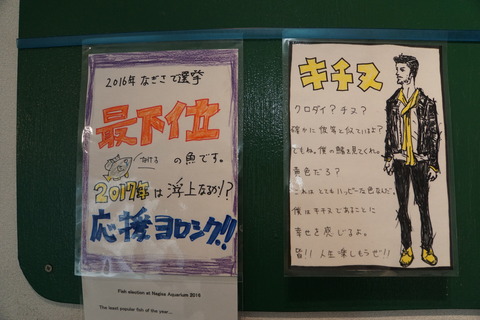 2016年 なぎさで選挙
最下位
泣ける
の魚です。
2017年は浮上なるか!?
応援ヨロシク!!
Fish election at Nagisa Aquarium 2016
The least popular fish of the year...
キチヌ
クロダイ？チヌ？
確かに彼等と似ているよ？
でもね。僕の鰭を見てくれ。
黄色だろ？
これは とてもハッピーな色なんだ。
僕はキチヌであることに
幸せを感じるよ。
皆!! 人生楽しもうぜ!!